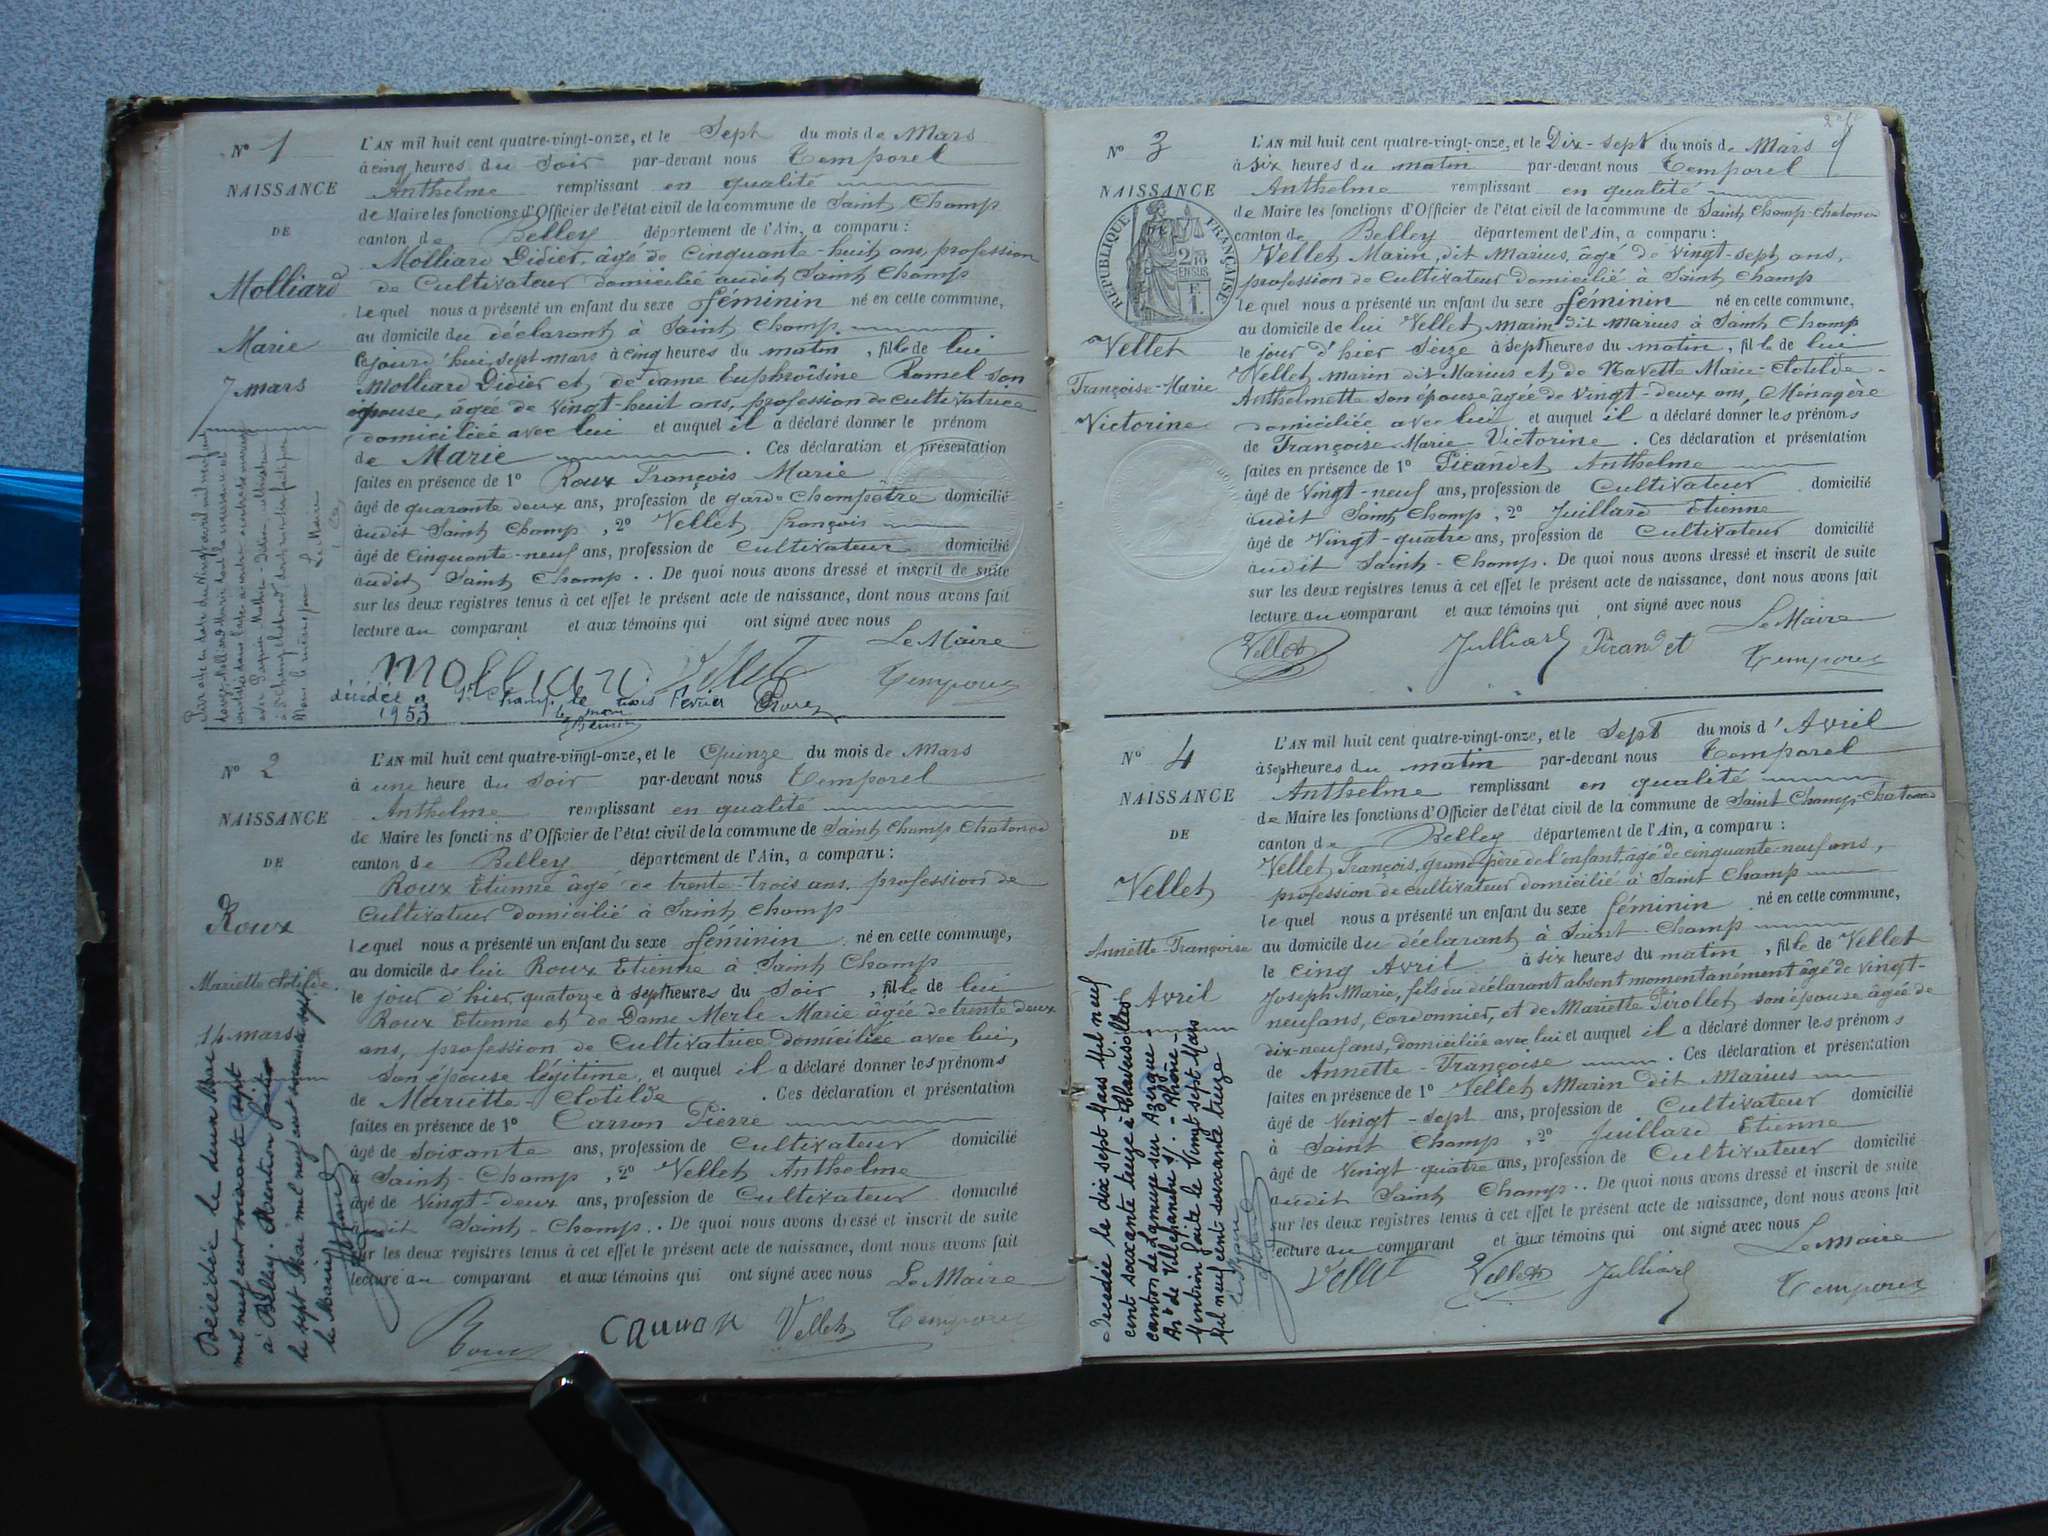 N° 1
NAISSANCE
DE
Molliard
Marie
7 mars
L'AN mil huit cent quatre-vingt-onze, et le Sept du mois de Mars
à cinq heures du Soir par-devant nous Temporel
Anthelme remplissant en qualité
de Maire les fonctions d'Officier de l'état civil de la commune de Saint Champ
canton de Belley département de l'Ain, a comparu :
Molliard Didier, âgé de cinquante-huit ans, profession
de Cultivateur domicilié audit Saint Champ
lequel nous a présenté un enfant du sexe féminin né en cette commune,
au domicile du déclarant à Saint Champ
cejourd'hui sept mars à cinq heures du matin, fille de lui
Molliard Didier et de dame Euphroisine Romel son
épouse, âgée de vingt-huit ans, profession de cultivatrice
domiciliée avec lui et auquel il a déclaré donner le prénom
de Marie. Ces déclaration et présentation
faites en présence de 1° Roux François Marie
âgé de quarante deux ans, profession de garde champêtre domicilié
audit Saint Champ, 2° Vellet françois
âgé de Cinquante-neuf ans, profession de Cultivateur domicilié
audit Saint Champ.. De quoi nous avons dressé et inscrit de suite
sur les deux registres tenus à cet effet le présent acte de naissance, dont nous avons fait
lecture au comparant et aux témoins qui ont signé avec nous
Le Maire
molliard Vellet Temporel
décédée à St Champ le trois février Roux
1953
N° 2
NAISSANCE
DE
Roux
Mariette Clotilde
14 mars
L'AN mil huit cent quatre-vingt-onze, et le Quinze du mois de Mars
à une heure du Soir par-devant nous Temporel
Anthelme remplissant en qualité
de Maire les fonctions d'Officier de l'état civil de la commune de Saint Champ Chatonod
canton de Belley département de l'Ain, a comparu :
Roux Etienne âgé de trente-trois ans, profession de
Cultivateur domicilié à Saint Champ
lequel nous a présenté un enfant du sexe féminin né en cette commune,
au domicile de lui Roux Etienne à Saint Champ
le jour d'hier quatorze à sept heures du Soir, fille de lui
Roux Etienne et de Dame Merle Marie âgée de trente deux
ans, profession de Cultivatrice domiciliée avec lui,
son épouse légitime, et auquel il a déclaré donner les prénoms
de Mariette-Clotilde. Ces déclaration et présentation
faites en présence de 1° Carron Pierre
âgé de soixante ans, profession de Cultivateur domicilié
à Saint-Champ, 2° Vellet Anthelme
âgé de Vingt-deux ans, profession de Cultivateur domicilié
audit Saint-Champ.. De quoi nous avons dressé et inscrit de suite
sur les deux registres tenus à cet effet le présent acte de naissance, dont nous avons fait
lecture au comparant et aux témoins qui ont signé avec nous
Le Maire
Roux Carron Vellet Temporel
Décédée le deux Mai
mil neuf cent soixante sept
à Belley. Mention faite
le sept Mai mil neuf cent soixante sept
le Maire
N° 3
NAISSANCE
RÉPUBLIQUE FRANÇAISE
Vellet
Françoise-Marie
Victorine
L'AN mil huit cent quatre-vingt-onze, et le Dix-sept du mois de Mars
à six heures du matin par-devant nous Temporel
Anthelme remplissant en qualité
de Maire les fonctions d'Officier de l'état civil de la commune de Saint Champ-Chatonod
canton de Belley département de l'Ain, a comparu :
Vellet Marin, dit Marius, âgé de vingt-sept ans,
profession de Cultivateur domicilié à Saint Champ
lequel nous a présenté un enfant du sexe féminin né en cette commune,
au domicile de lui Vellet marin dit Marius à Saint Champ
le jour d'hier Seize à Sept heures du matin, fille de lui
Vellet marin dit Marius et de Navette Marie-Clotilde-
Anthelmette son épouse âgée de vingt-deux ans, Ménagère
domiciliée avec lui et auquel il a déclaré donner les prénoms
de Françoise-Marie Victorine. Ces déclaration et présentation
faites en présence de 1° Picandet Anthelme
âgé de vingt-neuf ans, profession de Cultivateur domicilié
audit Saint Champ, 2° Juillard Etienne
âgé de Vingt-quatre ans, profession de Cultivateur domicilié
audit Saint-Champ. De quoi nous avons dressé et inscrit de suite
sur les deux registres tenus à cet effet le présent acte de naissance, dont nous avons fait
lecture au comparant et aux témoins qui ont signé avec nous
Le Maire
Vellet Julliard Picandet Temporel
N° 4
NAISSANCE
DE
Vellet
Annette-Françoise
Avril
L'AN mil huit cent quatre-vingt-onze, et le Sept du mois d'Avril
à sept heures du matin par-devant nous Temporel
Anthelme remplissant en qualité
de Maire les fonctions d'Officier de l'état civil de la commune de Saint Champ-Chatonod
canton de Belley département de l'Ain, a comparu :
Vellet François, grand-père de l'enfant, âgé de cinquante-neuf ans,
profession de cultivateur domicilié à Saint Champ
lequel nous a présenté un enfant du sexe féminin né en cette commune,
au domicile du déclarant à Saint-Champ
le cinq Avril à six heures du matin, fille de Vellet
Joseph Marie, fils du déclarant absent momentanément âgé de vingt-
neuf ans, cordonnier, et de Mariette Pirollet son épouse âgée de
dix-neuf ans, domiciliée avec lui et auquel il a déclaré donner les prénoms
de Annette-Françoise. Ces déclaration et présentation
faites en présence de 1° Vellet Marin dit Marius
âgé de vingt-sept ans, profession de Cultivateur domicilié
à Saint Champ, 2° Juillard Etienne
âgé de Vingt-quatre ans, profession de Cultivateur domicilié
audit Saint Champ.. De quoi nous avons dressé et inscrit de suite
sur les deux registres tenus à cet effet le présent acte de naissance, dont nous avons fait
lecture au comparant et aux témoins qui ont signé avec nous
Le Maire
Vellet Vellet Julliard Temporel
Décédée le dix sept Mars Mil neuf
cent soixante treize à
canton de sur Azergue
Ar^t de Villefranche s/S. - Rhône -
Mention faite le Vingt sept Mars
Mil neuf cent soixante treize
le Maire